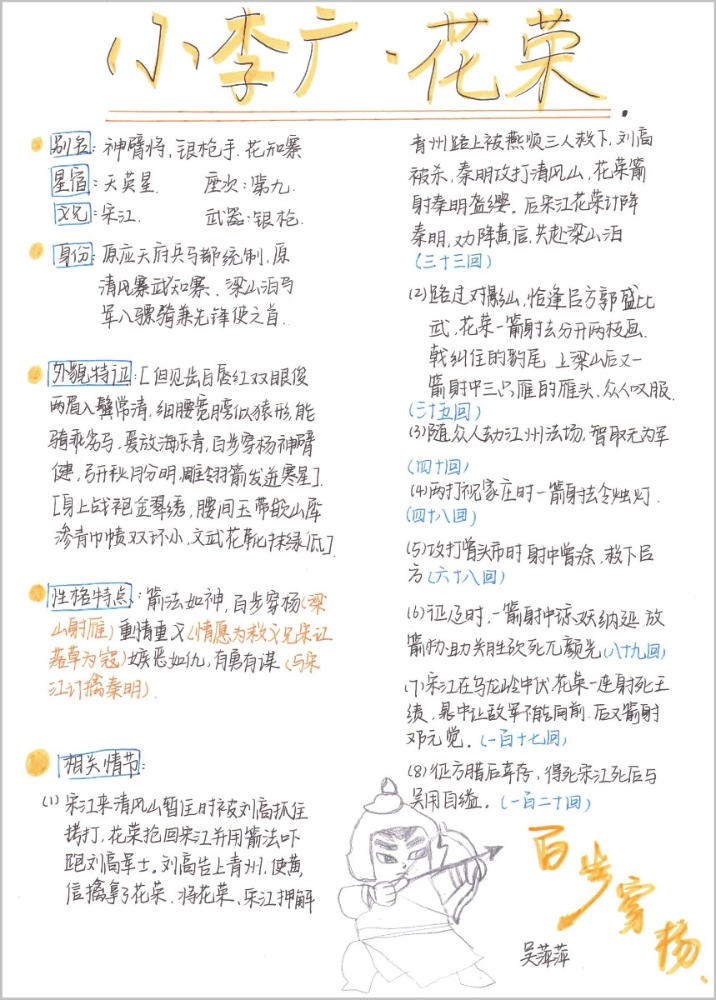 小李广·花荣
别名：神臂将、银枪手、花知寨
星宿：天英星 座次：第九
义兄：宋江 武器：银枪
身份：原应天府兵马都统制，原
清风寨武知寨、梁山泊马
军八骠骑兼先锋使之首.
外貌特征：[但见齿白唇红双眼俊
两眉入鬓常清，细腰宽膀似猿形，能
骑乖劣马，爱放海东青，百步穿杨神臂
健，弓开秋月分明，雕翎箭发迸寒星].
[身上战袍金翠绣，腰间玉带嵌山犀
渗青巾帻双环小，文武花靴抹绿低].
性格特点：箭法如神，百步穿杨(梁
山射雁)重情重义(情愿为救义兄宋江
落草为寇)嫉恶如仇，有勇有谋(与宋
江计擒秦明).
相关情节：
(1) 宋江来清风山暂住时被刘高抓住
拷打，花荣抢回宋江并用箭法吓
跑刘高军士。刘高告上青州，使黄
信擒拿了花荣，将花荣、宋江押解
青州路上被燕顺三人救下，刘高
被杀，秦明攻打清风山，花荣箭
射秦明盔缨。后宋江花荣计降
秦明，劝降黄信，共赴梁山泊
(三十三回)
(2)路过对影山，恰逢吕方郭盛比
武，花荣一箭射去分开两枝画
戟纠住的豹尾 上梁山后又一
箭射中三只雁的雁头，众人叹服.
(三十五回)
(3)随众人劫江州法场，智取无为军
(四十回)
(4)两打祝家庄时一箭射去令烛灯.
(四十八回)
(5)攻打曾头市时射中曾涂，救下吕
方(六十八回)
(6)征辽时，一箭射中琼妖纳延 放
箭协助关胜砍死兀颜光(八十九回)
(7)宋江在乌龙岭中伏，花荣一连射死王
绩、晁中让敌军不能向前，后又箭射
邓元觉。(一百十七回)
(8)征方腊后幸存，得死宋江死后与
吴用自缢。(一百二十回)
百步穿杨.
吴萍萍